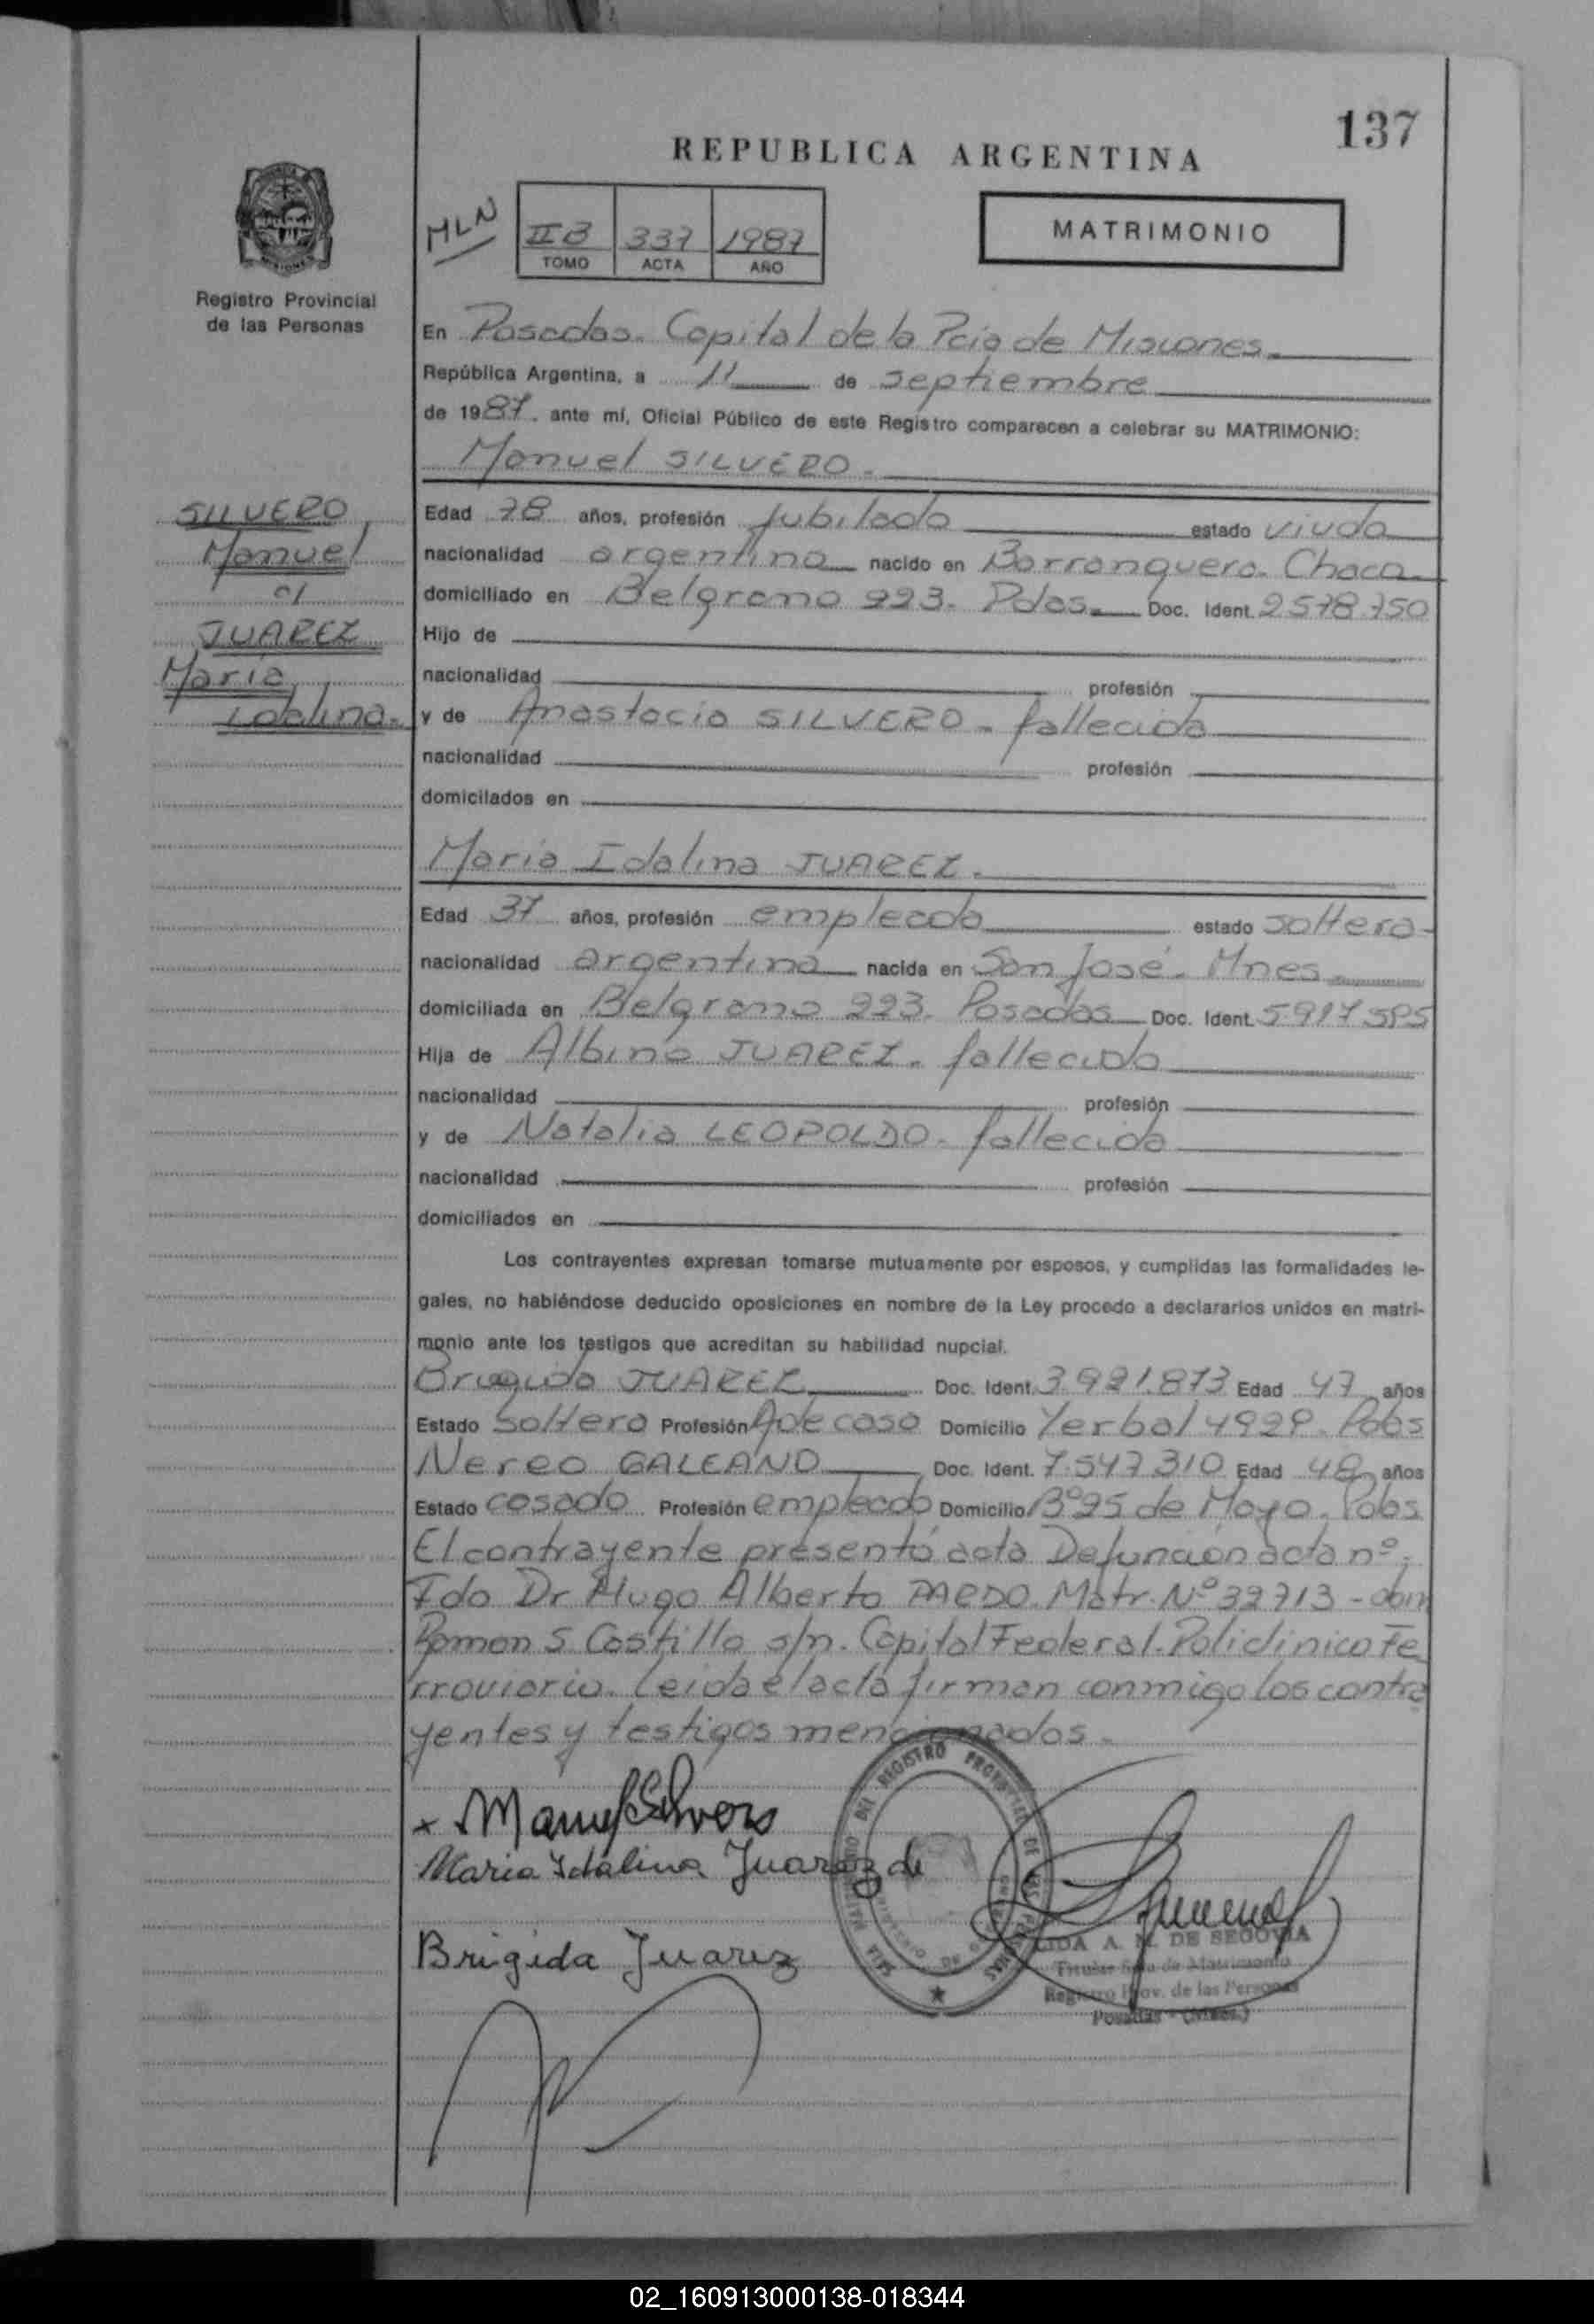 137
REPUBLICA ARGENTINA
MLN
II B 337 1987
TOMO ACTA AÑO
MATRIMONIO
Registro Provincial
de las Personas
En Posadas. Capital de la Pcia de Misiones.
República Argentina, a 11 de septiembre
de 1987. ante mí, Oficial Público de este Registro comparecen a celebrar su MATRIMONIO:
Manuel SILVERO.
SILVERO,
Manuel
c/
JUAREZ
Maria
Idalina.
Edad 78 años, profesión Jubilado estado viudo
nacionalidad argentina nacido en Barranquera. Chaco.
domiciliado en Belgrano 223. Pdas. Doc. Ident. 2578.750
Hijo de
nacionalidad profesión
y de Anastacia SILVERO - fallecida
nacionalidad profesión
domicilados en
Maria Idalina JUAREZ.
Edad 37 años, profesión empleada estado soltera.
nacionalidad argentina nacida en San José. Mnes.
domiciliada en Belgrano 223. Posadas Doc. Ident. 5917585
Hija de Albino JUAREZ. fallecido
nacionalidad profesión
y de Natalia LEOPOLDO. fallecida
nacionalidad profesión
domiciliados en
Los contrayentes expresan tomarse mutuamente por esposos, y cumplidas las formalidades le-
gales, no habiéndose deducido oposiciones en nombre de la Ley procedo a declararlos unidos en matri-
monio ante los testigos que acreditan su habilidad nupcial.
JUAREZ Doc. Ident. 3.921.873 Edad 47 años
Estado Soltera Profesión A de casa Domicilio Yerbal 4929. Pdas
Nereo GALEANO Doc. Ident. 7.547.310 Edad 48 años
Estado casado Profesión empleado Domicilio Bº 25 de Mayo. Pdas
El contrayente presentó acta Defunción acta nº.
Fdo Dr Hugo Alberto PARDO. Matr. Nº 32713 - dom
Ramon S. Castillo s/n. Capital Federal. Policlinico Fe
rroviario. Leida el acta firman conmigo los contra
yentes y testigos mencionados.
x Manuel Silvero
Maria Idalina Juarez de
Brigida Juarez
DEL REGISTRO PROVINCIAL DE LAS PERSONAS
A. M. DE SEGOVIA
Titular Sala de Matrimonio
Registro Prov. de las Personas
Posadas - (Mnes.)
02_160913000138-018344